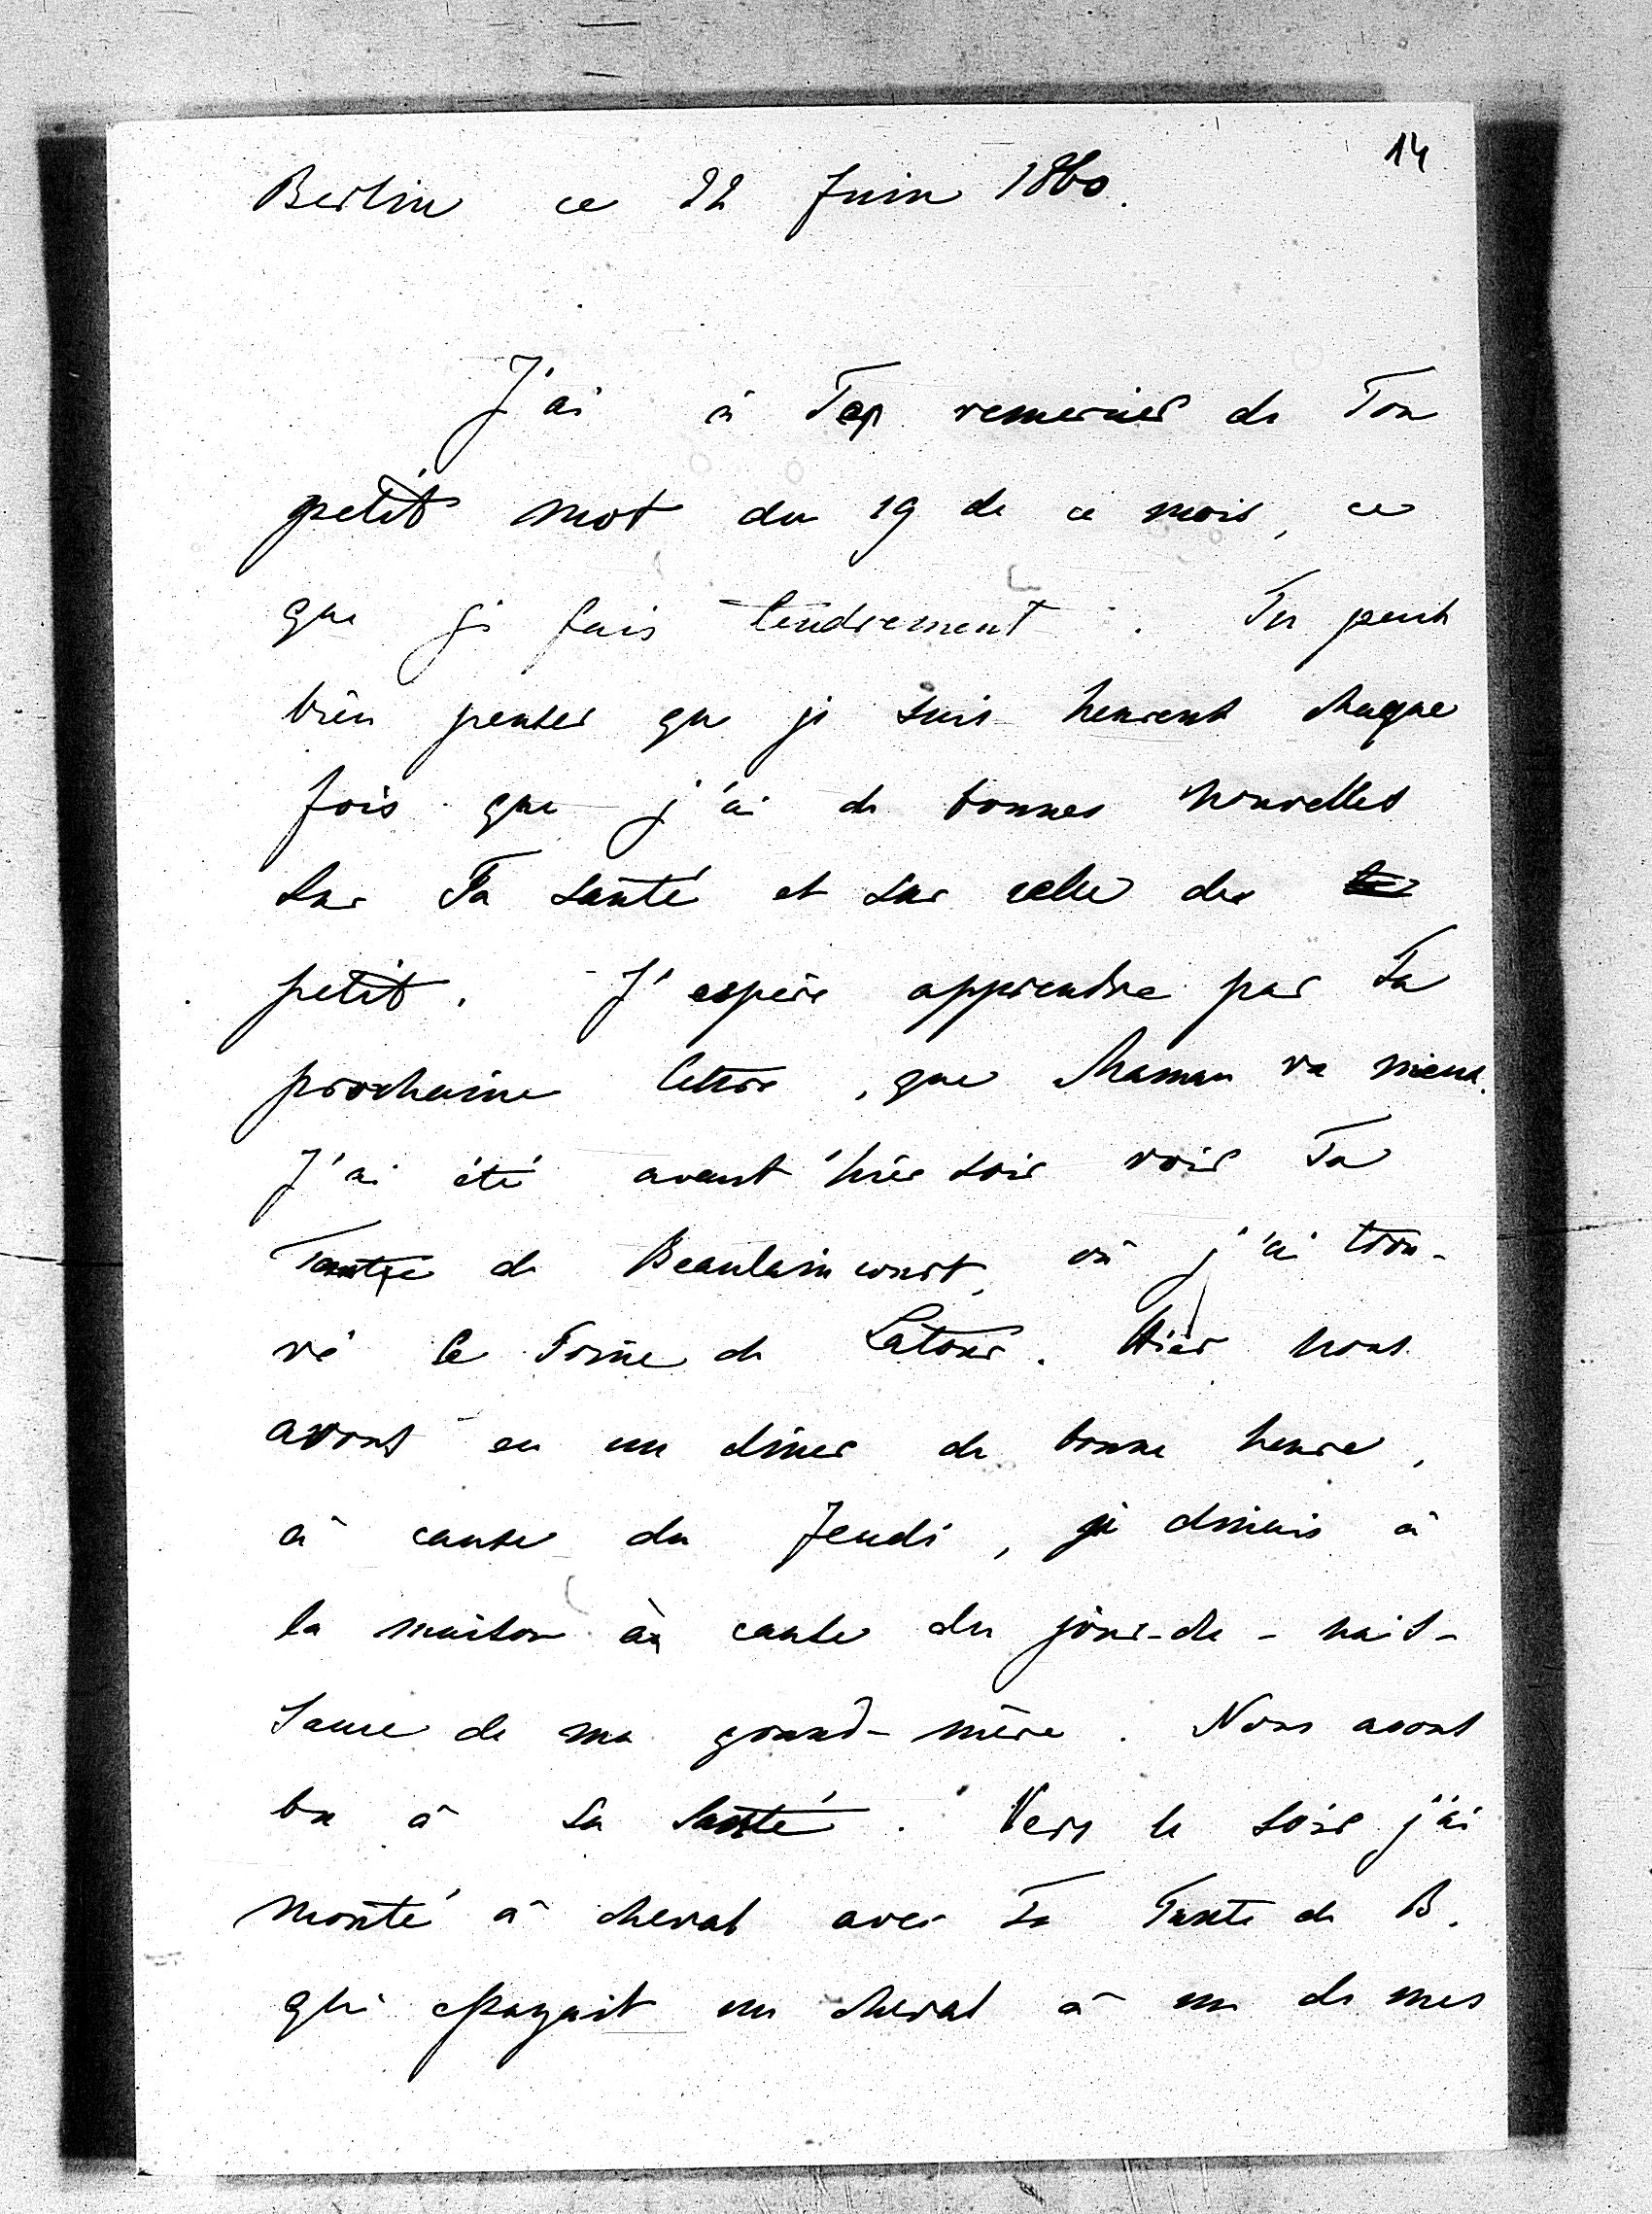 14
Berlin ce 22 Juin 1860.
J'ai à Te remercier de Ton
petit mot du 19 de ce mois, ce
que je fais tendrement. Tu peux
bien penser que je suis heureux chaque
fois que j'ai de bonnes nouvelles
sur Ta santé et sur celle des
petits. J'espère apprendre par Ta
prochaine lettre, que Maman va mieux.
J'ai été avant 'hier soir voir Ta
Tante de Beaulaincourt, où j'ai trou-
vé le de Latour. Hier nous
avons eu un dîner de bonne heure,
à cause du Jeudi, je dinais à
la maison à cause du jour-de-nais-
sance de ma grand-mère. Nous avons
bu à sa santé. Vers le soir j'ai
monté à cheval avec Ta Tante de B.
qui essayait un cheval à un de mes